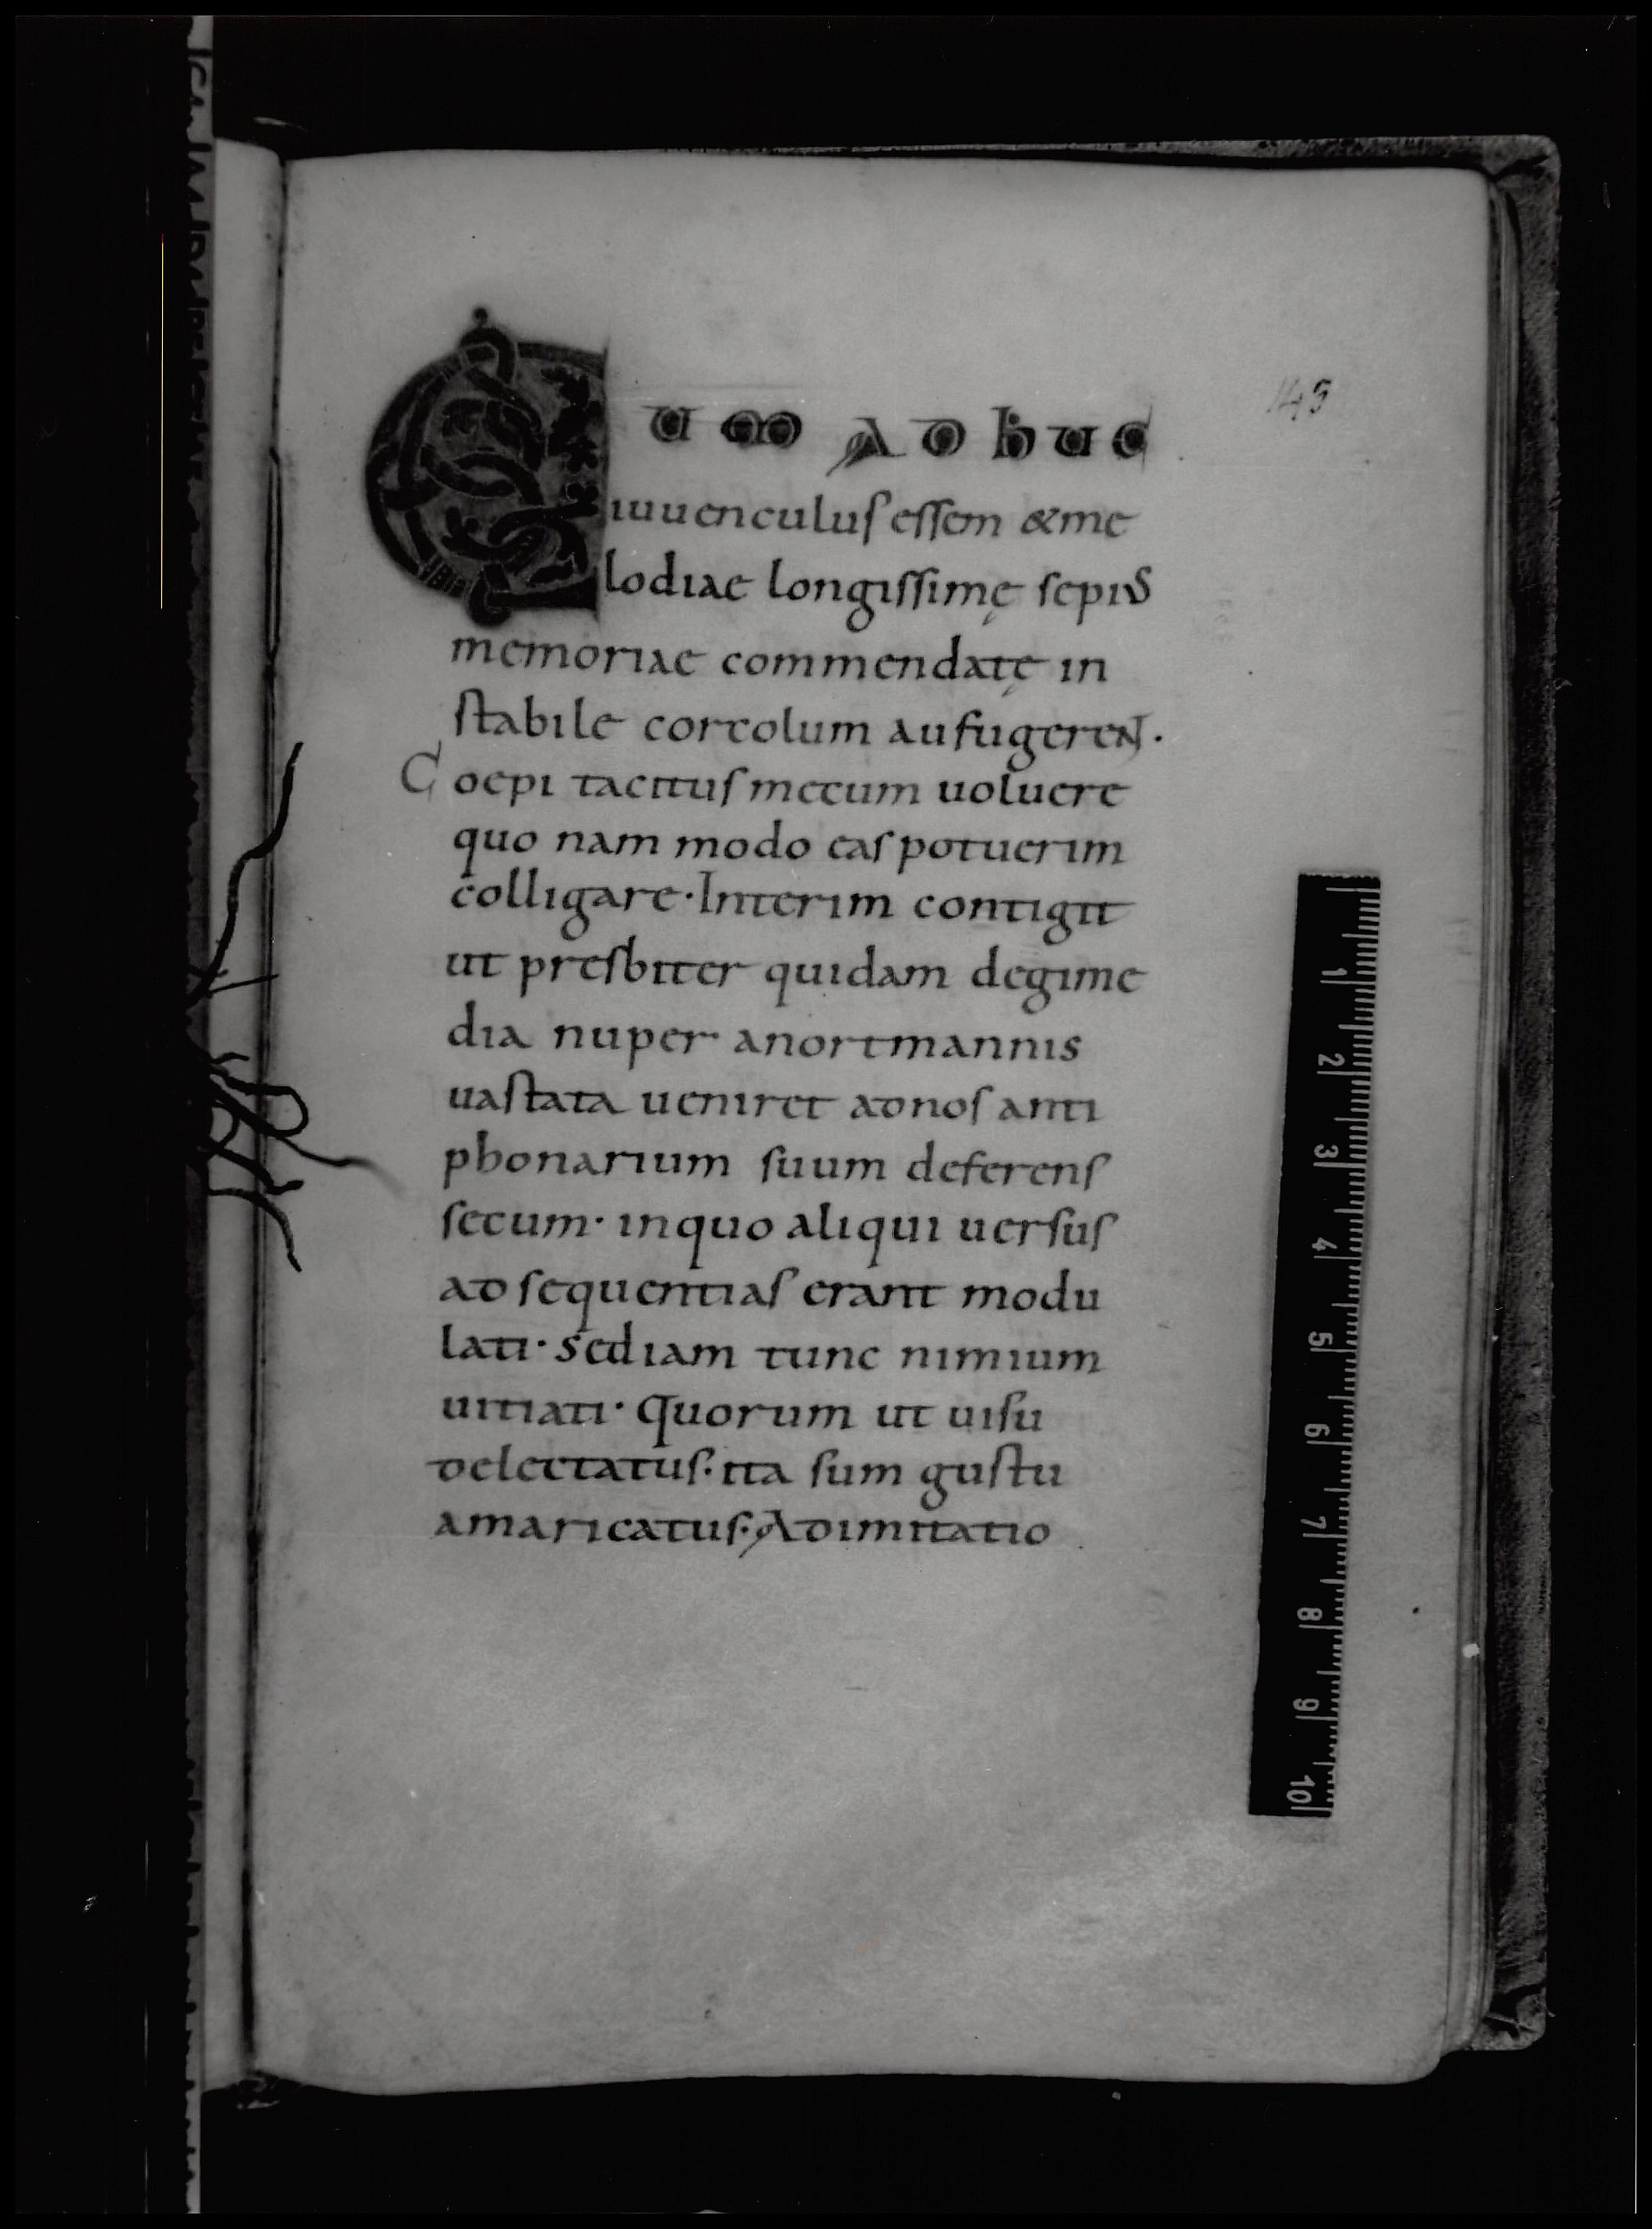 145
CUM ADHUC
iuuenculus essem & me
lodiae longissimę sepius
memoriae commendatę in
stabile corcolum aufugerent·
Coepi tacitus mecum uoluere
quo nam modo eas potuerim
colligare· Interim contigit
ut presbiter quidam degime
dia nuper anortmannis
uastata ueniret adnos anti
phonarium suum deferens
secum· inquo aliqui uersus
ad sequentias erant modu
lati· sediam tunc nimium
uitiati· Quorum ut uisu
delectatus· ita sum gustu
amaricatus· Adimitatio
1
2
3
4
5
6
7
8
9
10